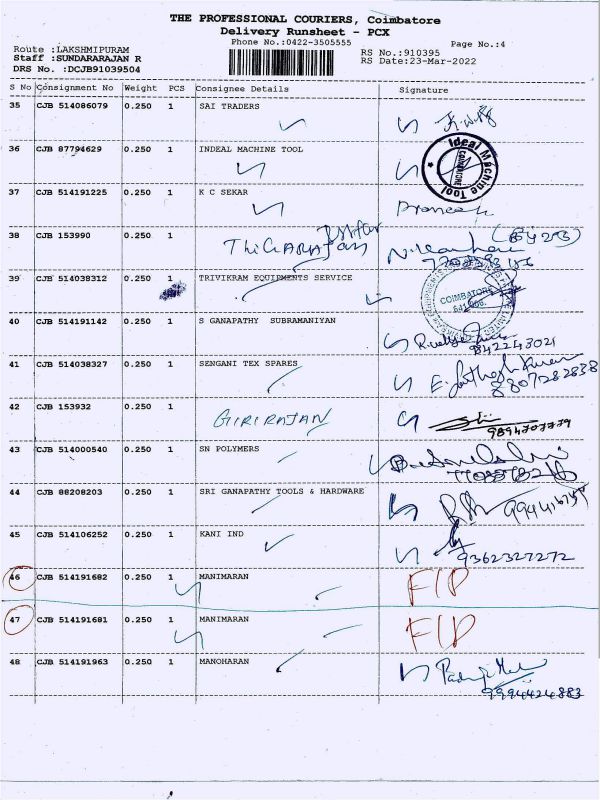 THE PROFESSIONAL COURIERS, Coimbatore
Delivery Runsheet - PCX
Phone No.:0422-3505555
Page No.:4
Route :LAKSHMIPURAM
RS No.:910395
Staff :SUNDARARAJAN R
RS Date:23-Mar-2022
DRS No. :DCJB91039504
S No Consignment No Weight PCS Consignee Details Signature
35 CJB 514086079 0.250 1 SAI TRADERS
36 CJB 87794629 0.250 1 INDEAL MACHINE TOOL
Ideal Machine Tool
COIMBATORE
37 CJB 514191225 0.250 1 K C SEKAR
38 CJB 153990 0.250 1 THIGARAJAN
39 CJB 514038312 0.250 1 TRIVIKRAM EQUIPMENTS SERVICE
COIMBATORE
40 CJB 514191142 0.250 1 S GANAPATHY SUBRAMANIYAN
9842243021
41 CJB 514038327 0.250 1 SENGANI TEX SPARES
8807282838
42 CJB 153932 0.250 1 GIRIRAJAN
9894707779
43 CJB 514000540 0.250 1 SN POLYMERS
44 CJB 88208203 0.250 1 SRI GANAPATHY TOOLS & HARDWARE
45 CJB 514106252 0.250 1 KANI IND
9362327272
46 CJB 514191682 0.250 1 MANIMARAN F/D
47 CJB 514191681 0.250 1 MANIMARAN F/D
48 CJB 514191963 0.250 1 MANOHARAN
9994424883